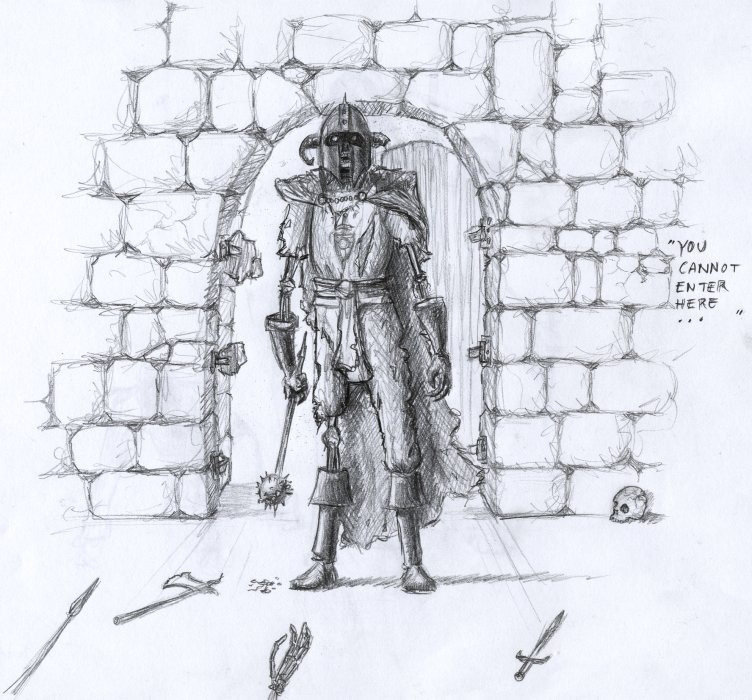 "YOU
CANNOT
ENTER
HERE
... "